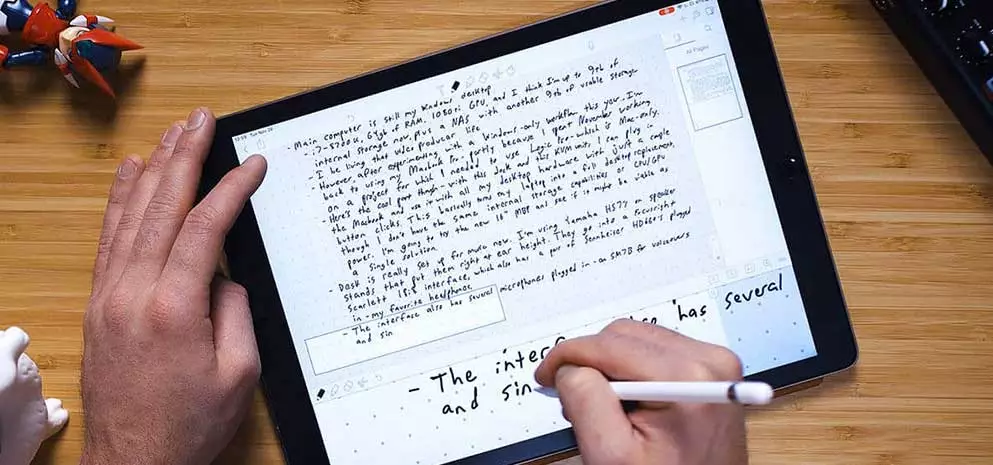 12:59 Tue Nov 26
All Pages
- Main computer is still my Windows desktop
i7-8700K, 64gb of RAM, 1080ti GPU, and I think I'm up to 9tb of
internal storage now, plus a NAS with another 9tb of usable storage.
I be living that video producer life
- However, after experimenting with a Windows-only workflow this year, I'm
back to using my MacBook Pro. Partly because I spent November working
on a project for which I needed to use Logic Pro, which is Mac-only.
- Here's the cool part though - with this dock and this KVM unit, I can plug in
the MacBook and use it with all my desktop hardware with just a couple
button clicks. This basically turns my laptop into a full desktop replacement,
though I don't have the same internal storage capabilities or CPU/GPU
power. I'm going to try the new 16" MBP and see if it might be viable as
a single solution.
- Desk is really set up for music now. I'm using Yamaha HS7's on speaker
stands that put them right at ear height. They go into a Focusright
Scarlett 18i8 interface, which also has a pair of Sennheiser HD650's plugged
in - my favorite headphones
- The interface also has several microphones plugged in - an SM7B for voiceovers
and sin
- The inter has several
and sin